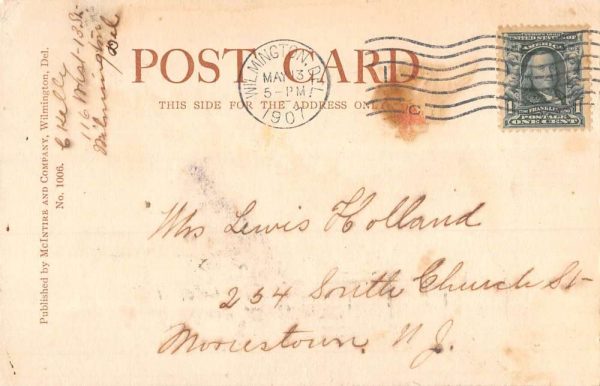 C Kelly
116 West-13 St-
Wilmington
Del
Published by McIntire and Company, Wilmington, Del.
No. 1006.
POST CARD
THIS SIDE FOR THE ADDRESS ONLY
WILMINGTON, DEL.
MAY 13
5-PM
1907
AMERICA
FRANKLIN
1 1
POSTAGE
ONE CENT
Mrs Lewis Holland
254 South Church St-
Moorestown N J.